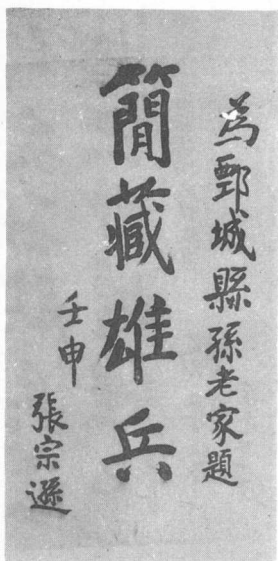 為鄄城縣孫老家題
簡藏雄兵
壬申
張宗遜